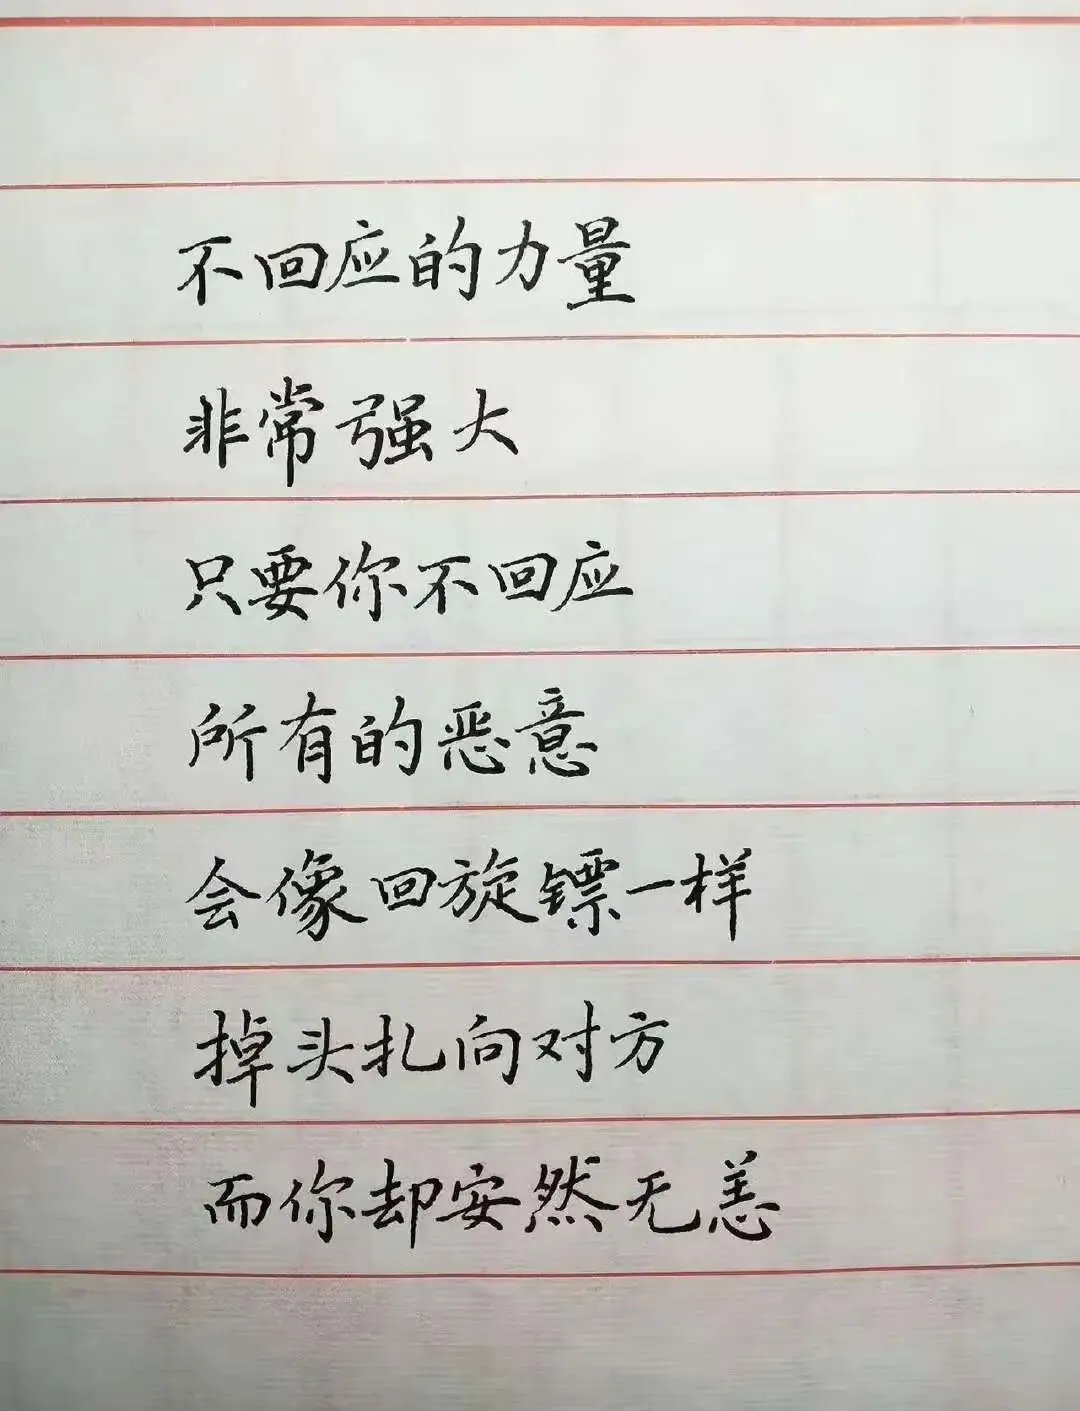 不回应的力量
非常强大
只要你不回应
所有的恶意
会像回旋镖一样
掉头扎向对方
而你却安然无恙